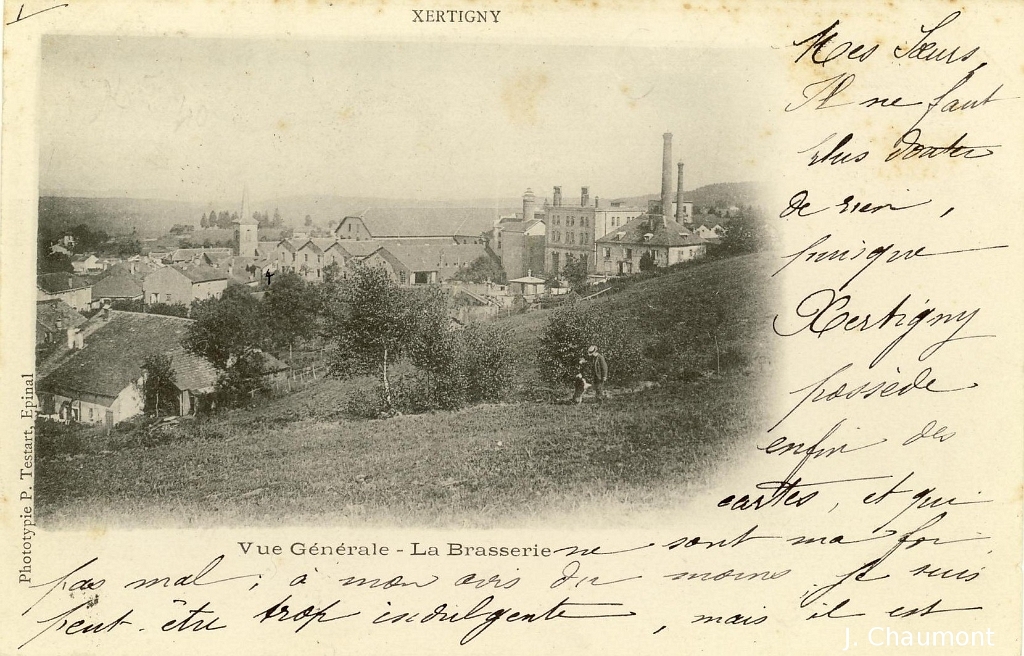 XERTIGNY
Mes Sœurs,
Il ne faut
plus douter
de rien,
puisque
Xertigny
possède
enfin des
cartes, et qui
Vue Générale - La Brasserie ne sont ma foi
pas mal; à mon avis du moins, je suis
peut-être trop indulgente, mais il est
Phototypie P. Testart, Epinal
J. Chaumont